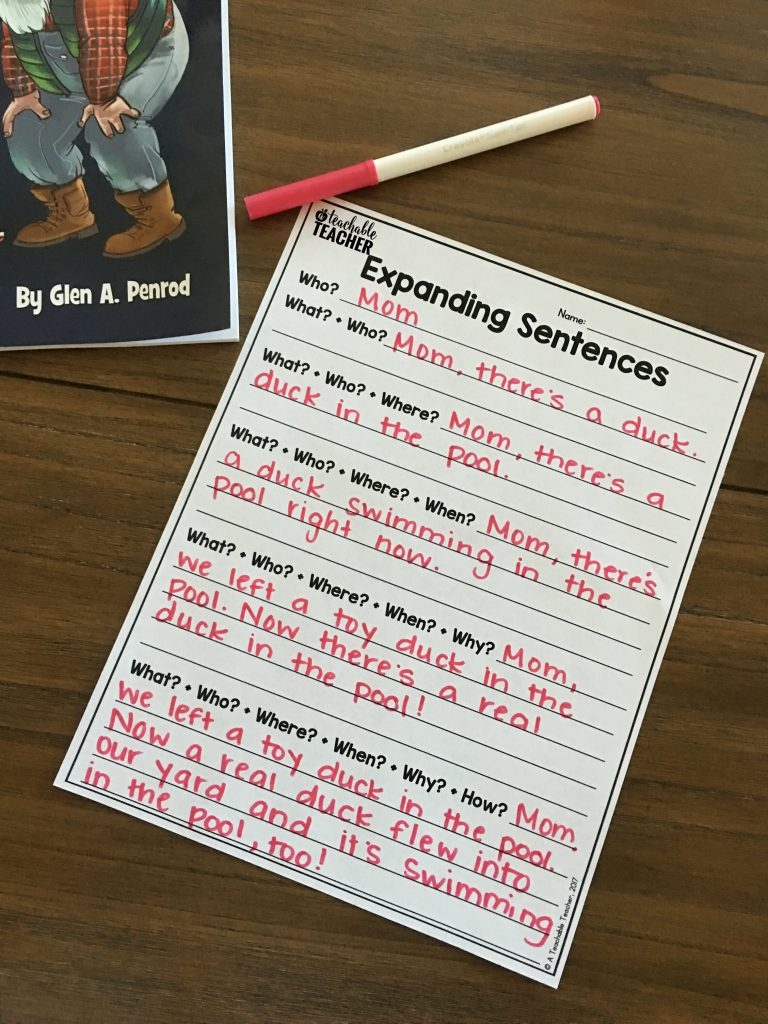 By Glen A. Penrod
Crayola SuperTip
a teachable
TEACHER
Expanding Sentences
Name:
Who? Mom
What? + Who? Mom, there's a duck.
What? + Who? + Where? Mom, there's a
duck in the pool.
What? + Who? + Where? + When? Mom, there's
a duck swimming in the
pool right now.
What? + Who? + Where? + When? + Why? Mom,
we left a toy duck in the
pool. Now there's a real
duck in the pool!
What? + Who? + Where? + When? + Why? + How? Mom,
we left a toy duck in the pool.
Now a real duck flew into
our yard and it's swimming
in the pool, too!
© A Teachable Teacher, 2017